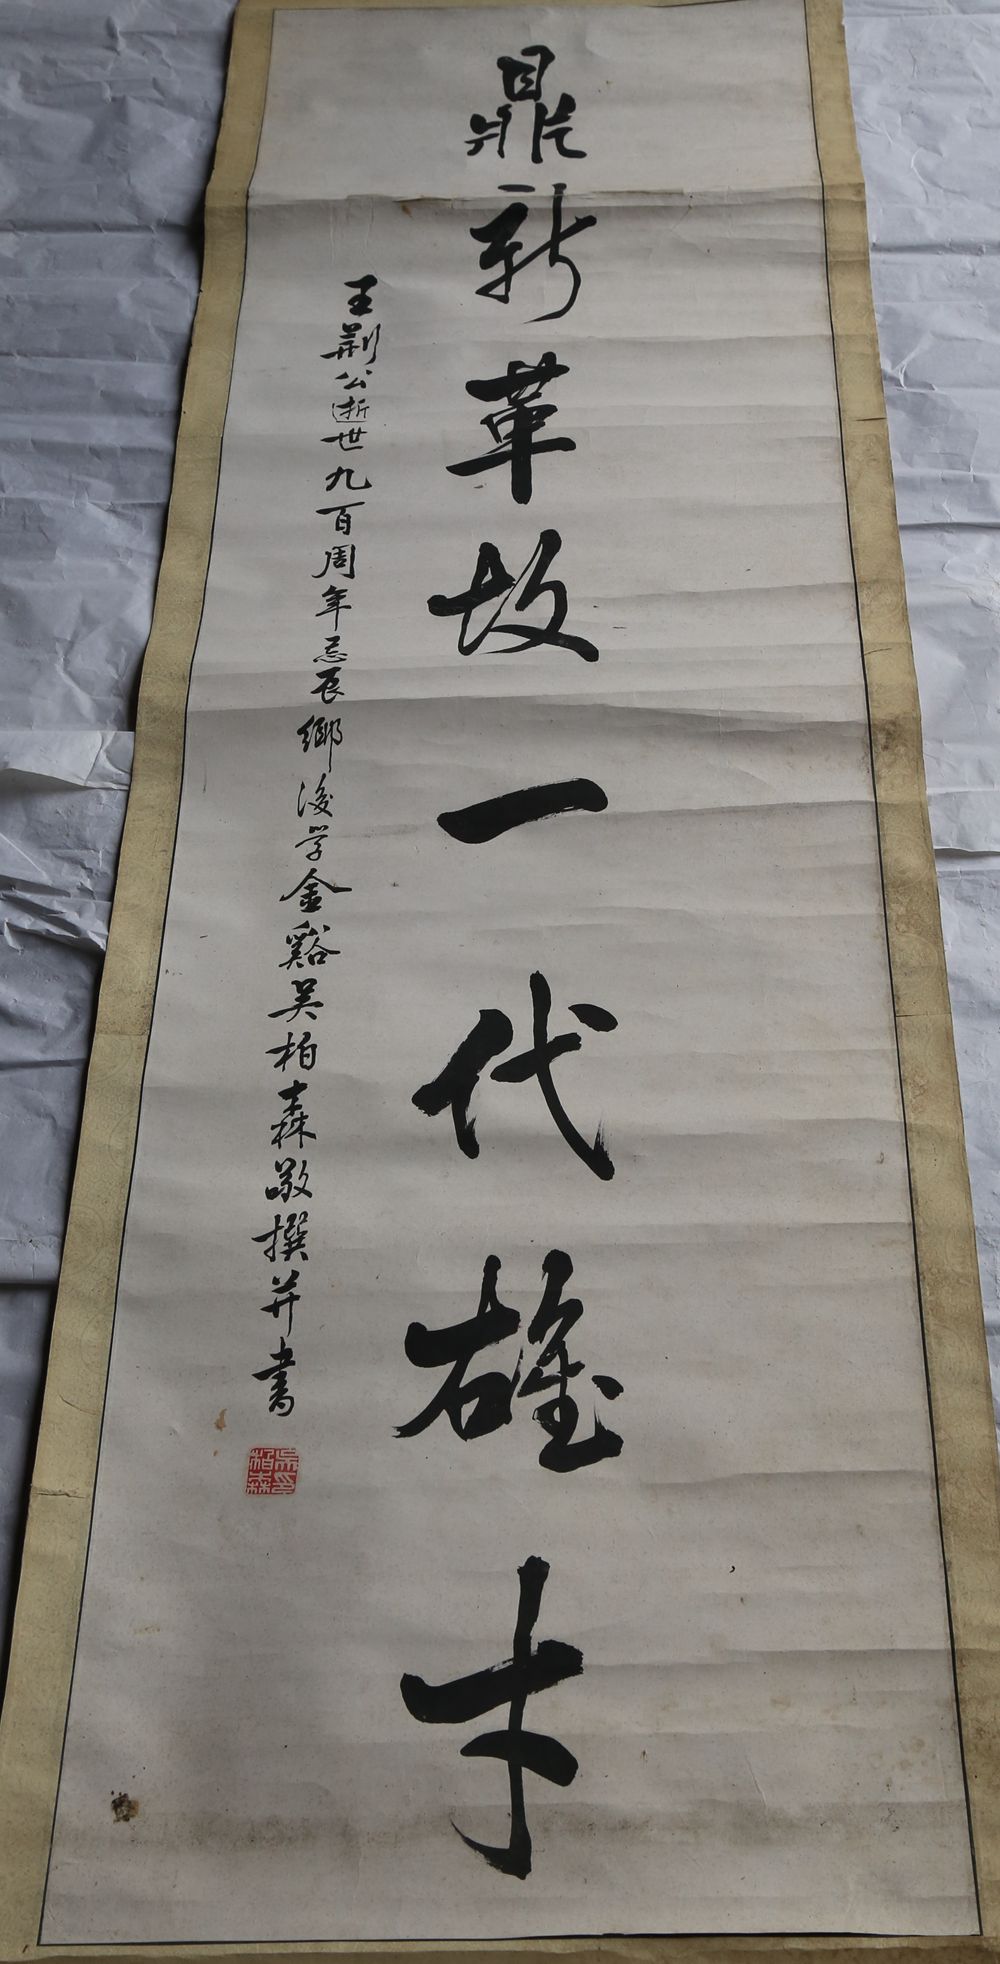 鼎新革故一代雄才
王荆公逝世九百周年忌辰鄉後学金谿吴柏森敬撰并書
吴柏森印